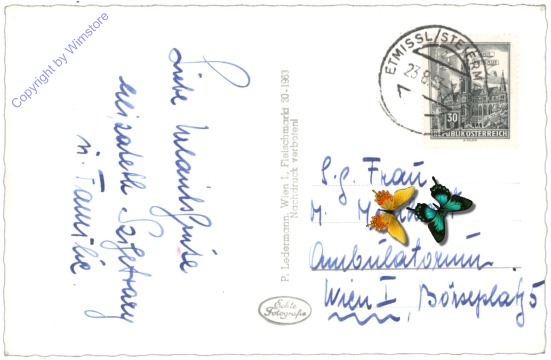 Copyright by Wimstore
Liebe Urlaubsgrüße
Elisabeth Szigetvary
u. Familie.
P. Ledermann, Wien I., Fleischmarkt 30 - 1963
Nachdruck verboten!
Echte
Fotografie
ETMISSL / STEIERM
23.8.
1
30
REPUBLIK ÖSTERREICH
S.g. Frau
M.
Ambulatorium
Wien I, Börseplatz 5